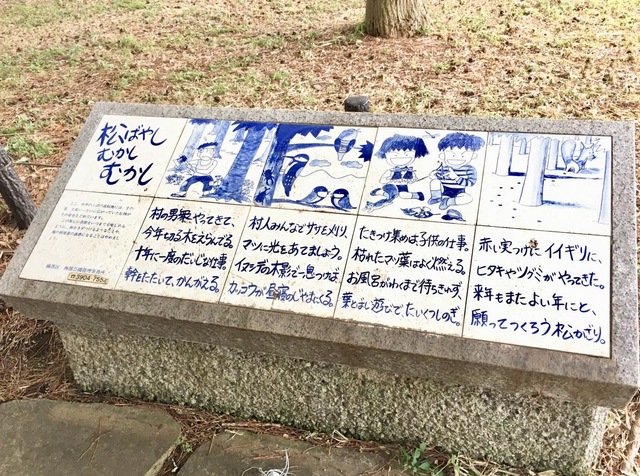 松こばやし
むかし
むかし
村の男衆やってきて、
今年切る木をえらんでる。
十年に一度のだいじな仕事。
幹をたたいて、かんがえる。
村人みんなでササをメリリ、
マツに光をあてましょう。
イヌシデの木影で一息つけば
カッコウが昼寝のじゃまにくる。
たきつけ集めは子供の仕事。
枯れたマツ葉はよく燃える。
お風呂がわくまで待ちきれず、
葉とばし遊びで、たいくつしのぎ。
赤い実つけたイイギリに、
ヒタキやツグミがやってきた。
来年もまたよい年にと、
願ってつくろう松かざり。